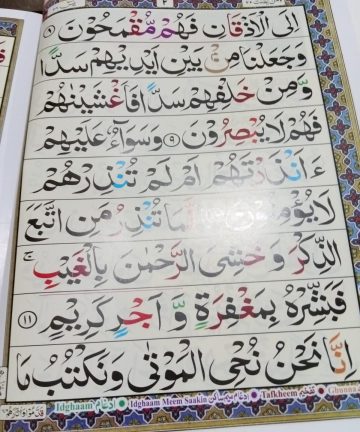 اِلَى الْاَذْقَانِ فَهُمْ مُّقْمَحُوْنَ ﴿۸﴾
وَجَعَلْنَا مِنْۢ بَيْنِ اَيْدِيْهِمْ سَدًّا
وَّمِنْ خَلْفِهِمْ سَدًّا فَاَغْشَيْنٰهُمْ
فَهُمْ لَا يُبْصِرُوْنَ ﴿۹﴾ وَسَوَآءٌ عَلَيْهِمْ
ءَاَنْذَرْتَهُمْ اَمْ لَمْ تُنْذِرْهُمْ
تُنْذِرُ مَنِ اتَّبَعَ
الذِّكْرَ وَخَشِيَ الرَّحْمٰنَ بِالْغَيْبِ ۚ
فَبَشِّرْهُ بِمَغْفِرَةٍ وَّاَجْرٍ كَرِيْمٍ ﴿۱۱﴾
اِنَّا نَحْنُ نُحْيِ الْمَوْتٰى وَنَكْتُبُ مَا
Idghaam ادغام Idghaam Meem Saakin ادغام میم ساکن Tafkheem تفخیم Ghunna